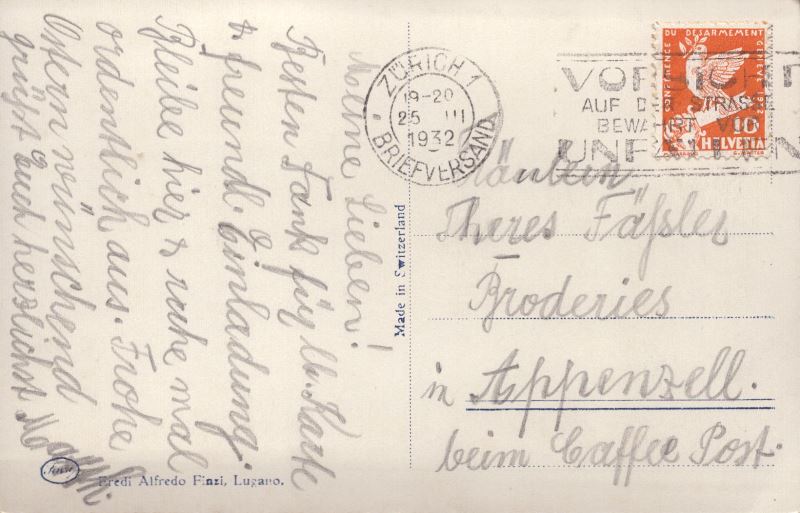 Meine Lieben!
Besten Dank für lb. Karte
& freundl. Einladung.
Bleibe hier & ruhe mal
ordentlich aus. Frohe
Ostern wünschend
grüßt Euch herzlichst
Eredi Alfredo Finzi, Lugano.
Made in Switzerland
ZÜRICH 1
19-20
25 III
1932
BRIEFVERSAND
VORSICHT
AUF DER STRASSE
BEWAHRT VOR
UNFÄLLEN
CONFERENCE DU DESARMEMENT GENEVE 1932
10
HELVETIA
Fräulein
Theres Fäßler
Broderies
in Appenzell.
beim Caffee Post.